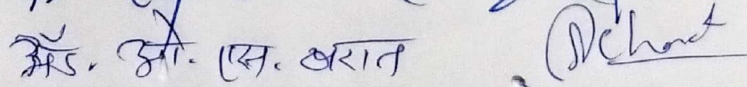 ॲड. ओ. एस. खरात